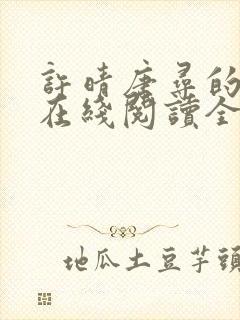 許晴唐尋的
在綫閱讀全
地瓜土豆芋頭